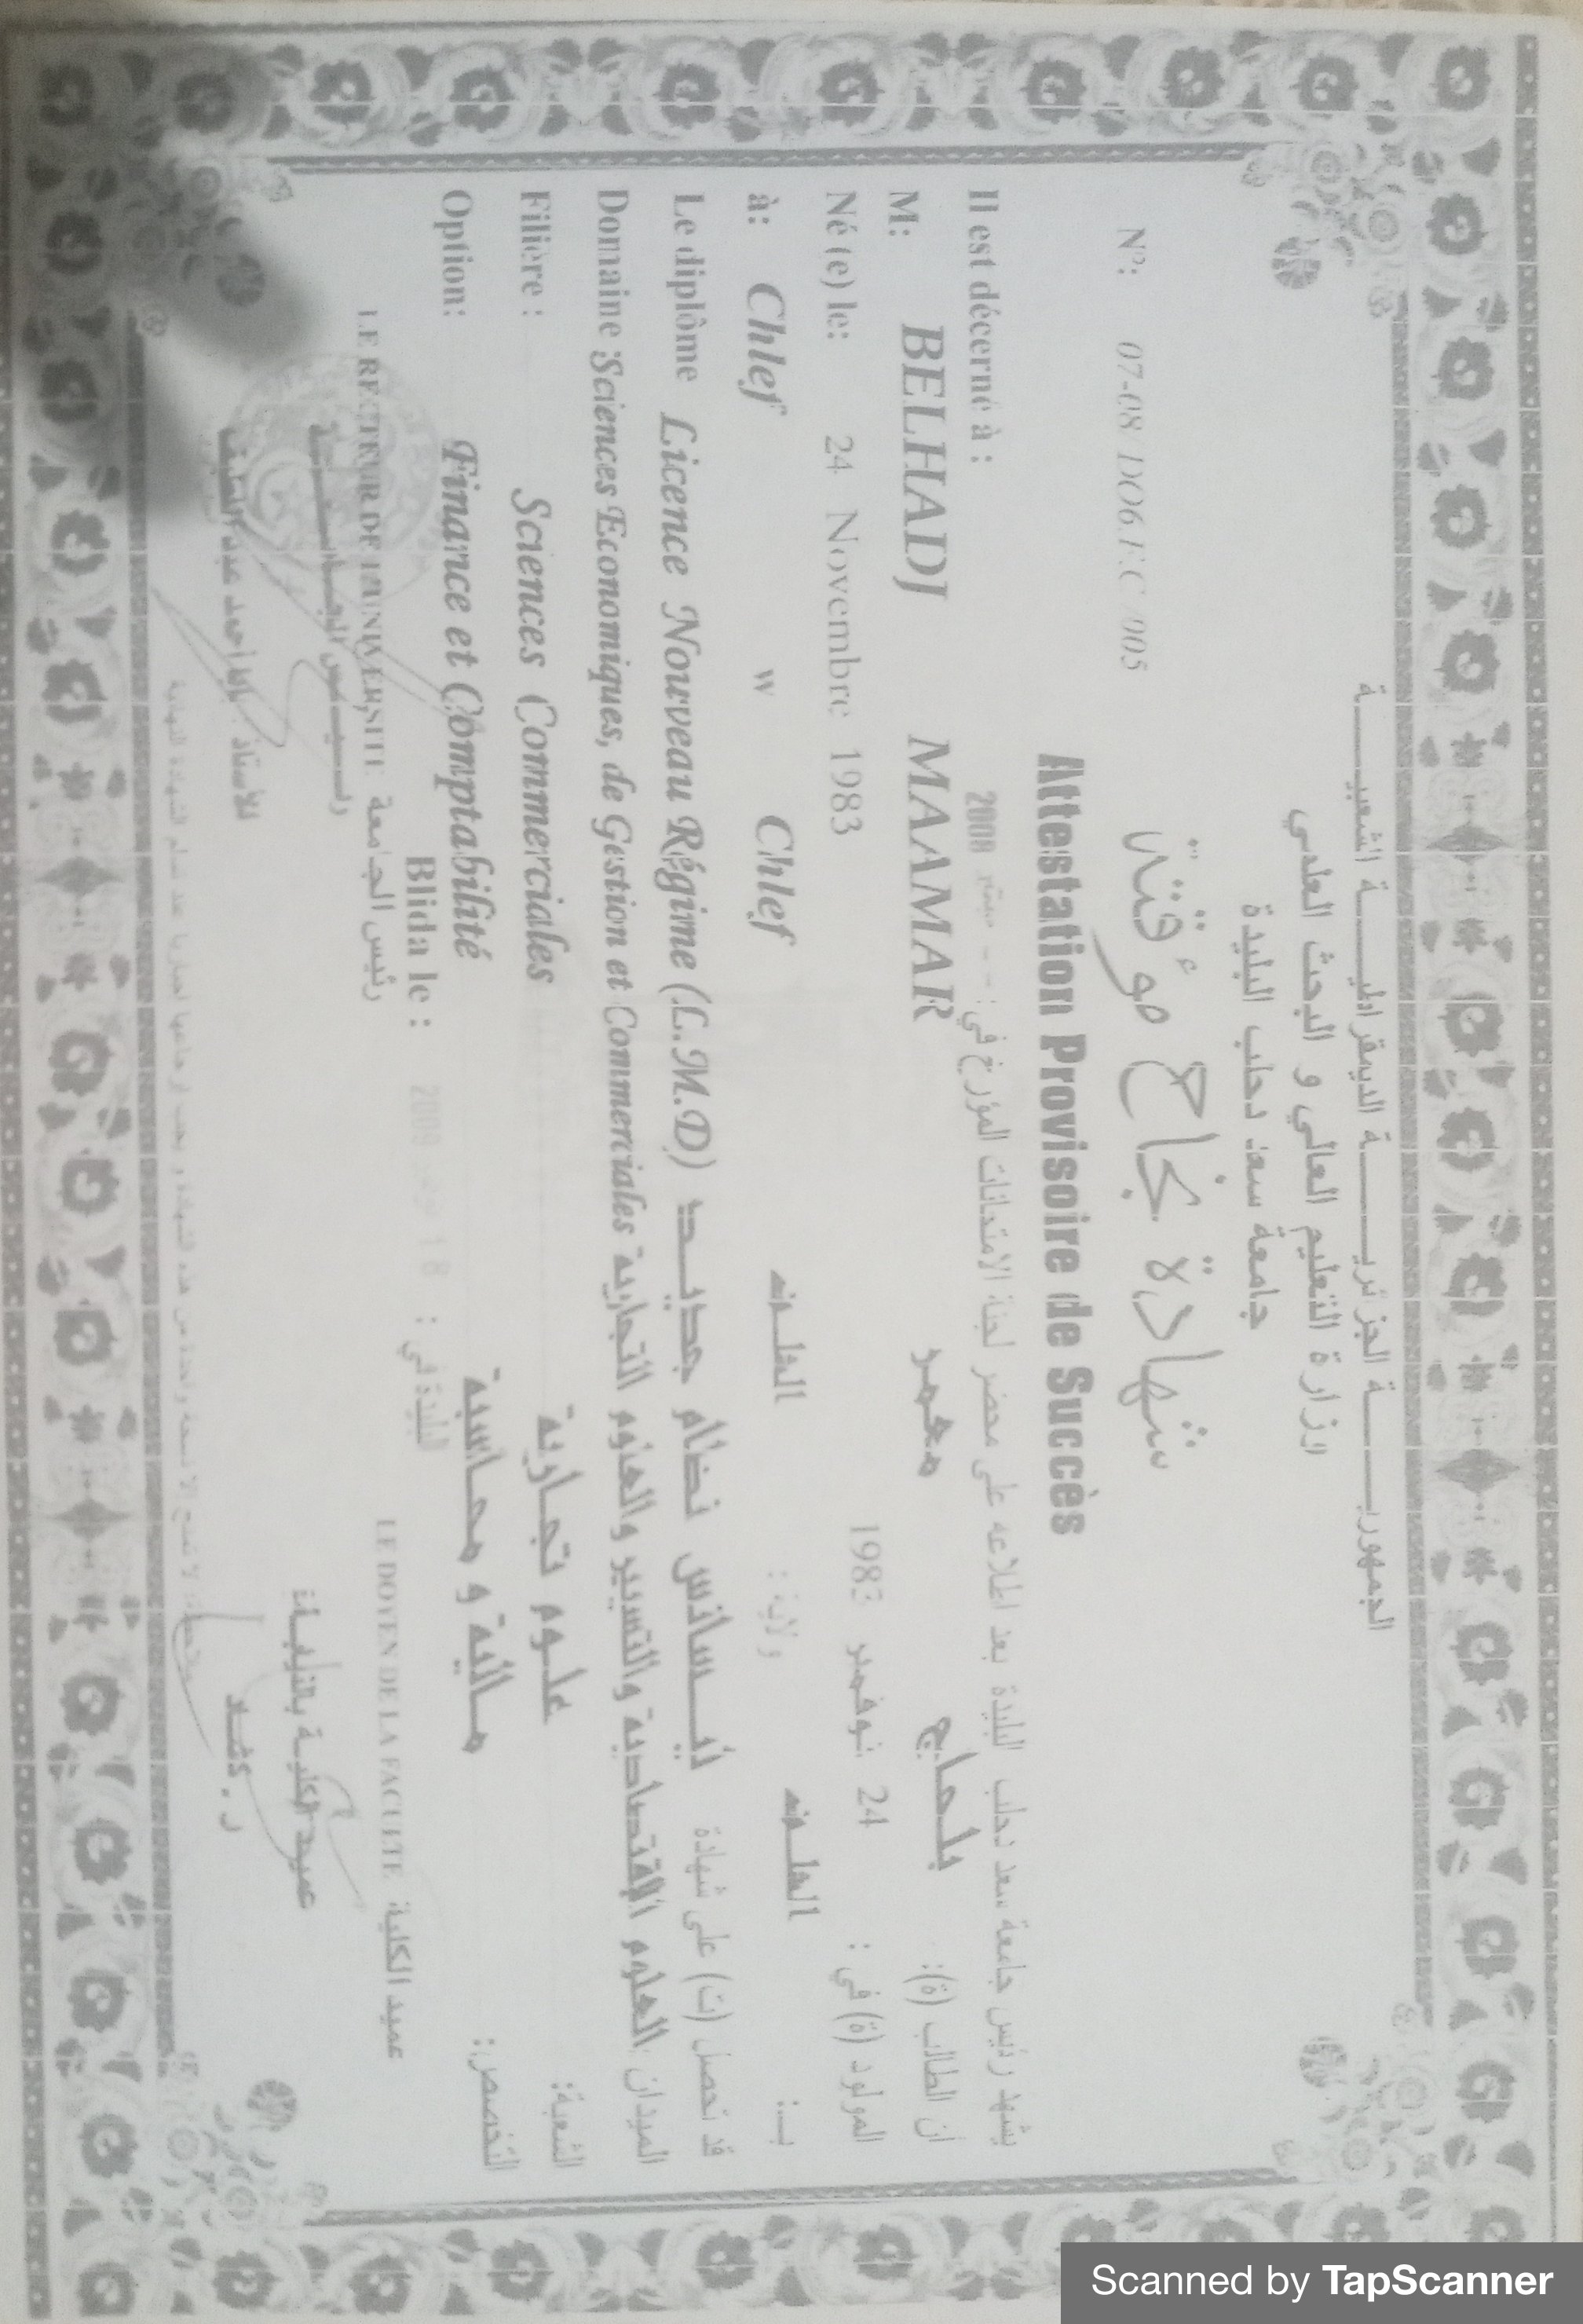 الجمهوريـــــة الجزائريـــــة الديمقراطيـــــة الشعبيـــــة
وزارة التعليم العالي و البحث العلمي
جامعة سعد دحلب البليدة
شهادة نجاح مؤقتة
N°: 07-08 DO6.EC 005
Attestation Provisoire de Succès
يشهد رئيس جامعة سعد دحلب البليدة بعد اطلاعه على محضر لجنة الامتحانات المؤرخ في: 2008
Il est décerné à :
M: BELHADJ MAAMAR معمر بلحاج أن الطالب (ة):
Né (e) le: 24 Novembre 1983 24 نوفمبر 1983 المولود (ة) في :
à: Chlef w Chlef الشلف ولاية : الشلف بـ:
Le diplôme Licence Nouveau Régime (L.M.D) قد تحصل (ت) على شهادة ليسانس نظام جديد
Domaine Sciences Economiques, de Gestion et Commerciales الميدان العلوم الإقتصادية والتسيير والعلوم التجارية
Filière : Sciences Commerciales علوم تجارية الشعبة:
Option: Finance et Comptabilité مالية و محاسبة التخصص:
Blida le : 18 2009 البليدة في :
LE RECTEUR DE L'UNIVERSITE رئيس الجامعة
LE DOYEN DE LA FACULTE عميد الكلية
رئيس الجامعة
عميد الكلية بالنيابة
الأستاذ: بابا أحمد عبد اللطيف
Scanned by TapScanner